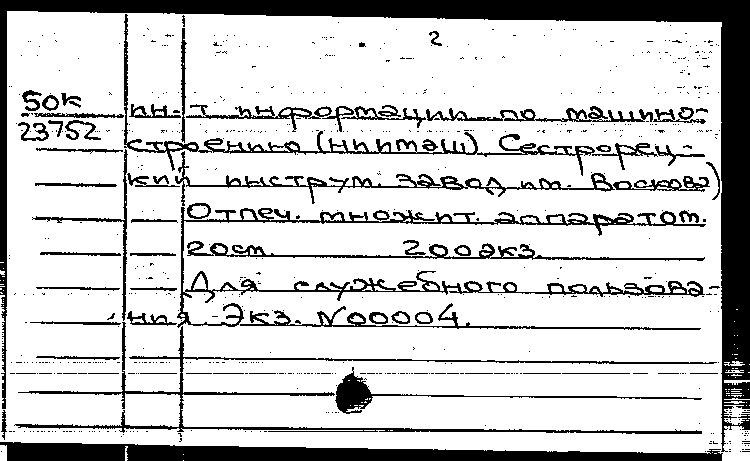 2
50к
23752
ин-т информации по машино-
строению (нинмаш). Сестрорец-
кий инструм. завод им. Воскова)
Отпеч. множит. аппаратом.
20ст. 200экз.
Для служебного пользова-
ния. Экз. N00004.